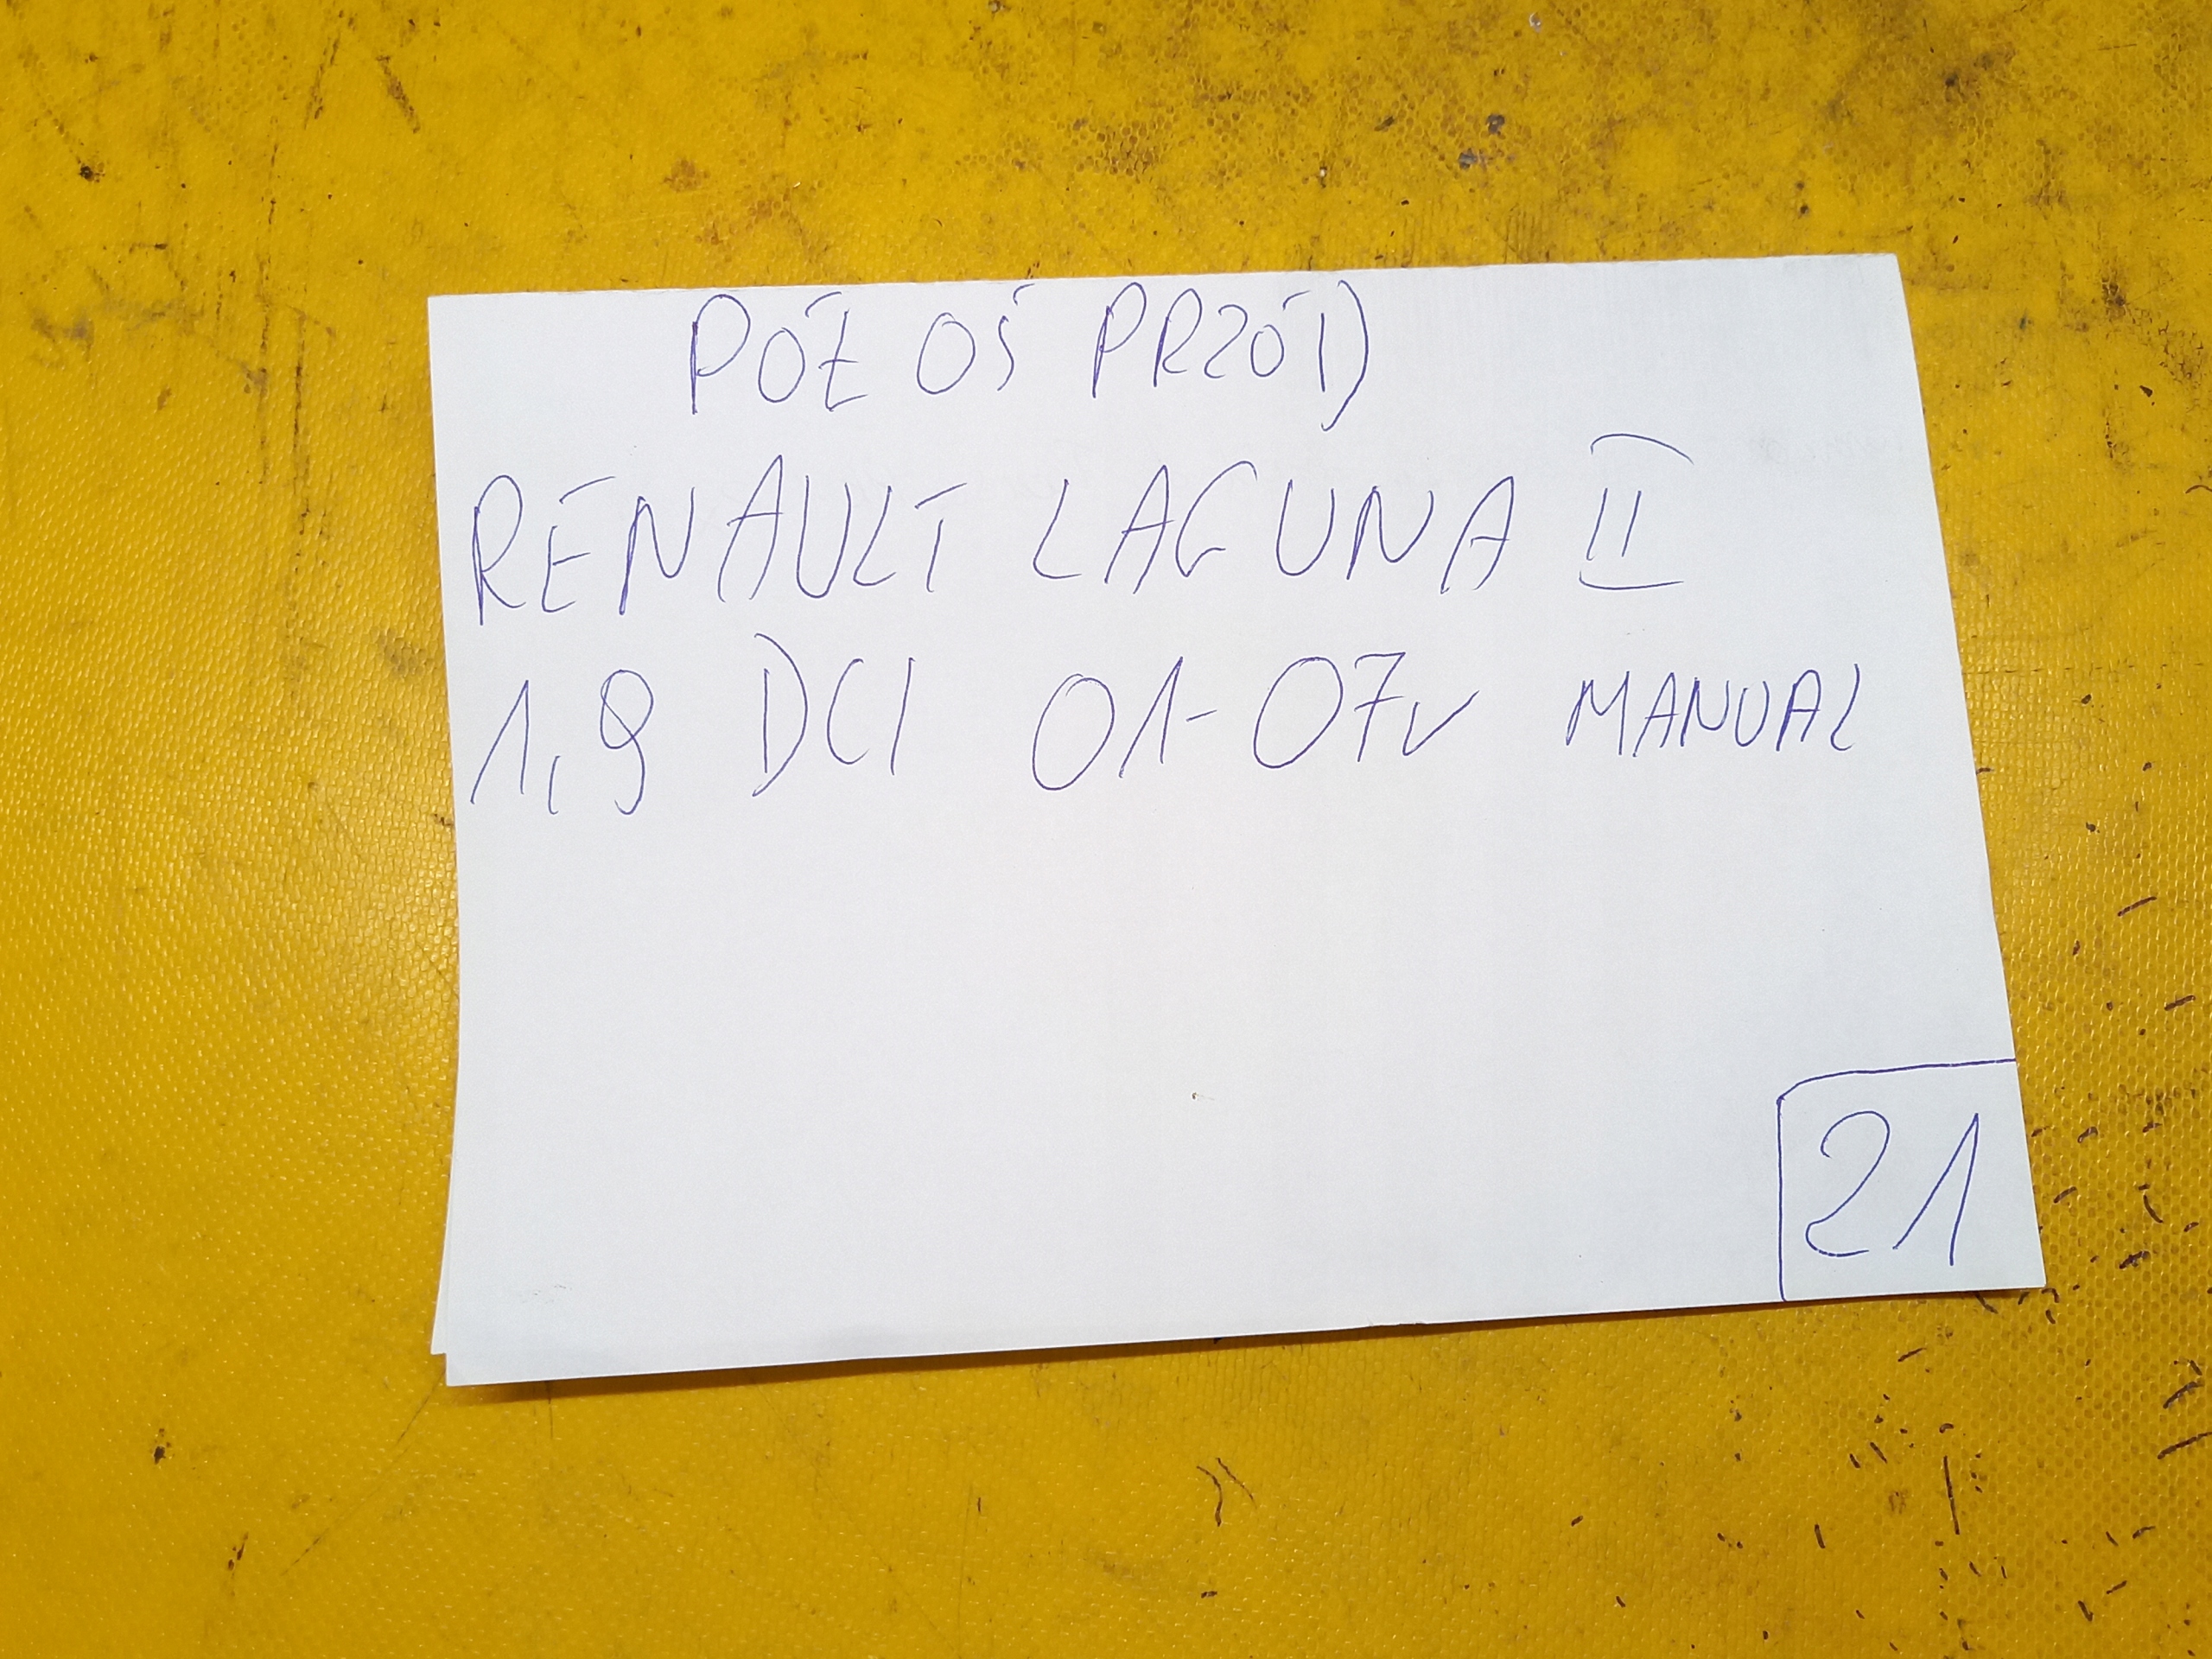 PÓŁ OŚ PRZÓD
RENAULT LAGUNA II
1,9 DCI 01-07r MANUAL
21